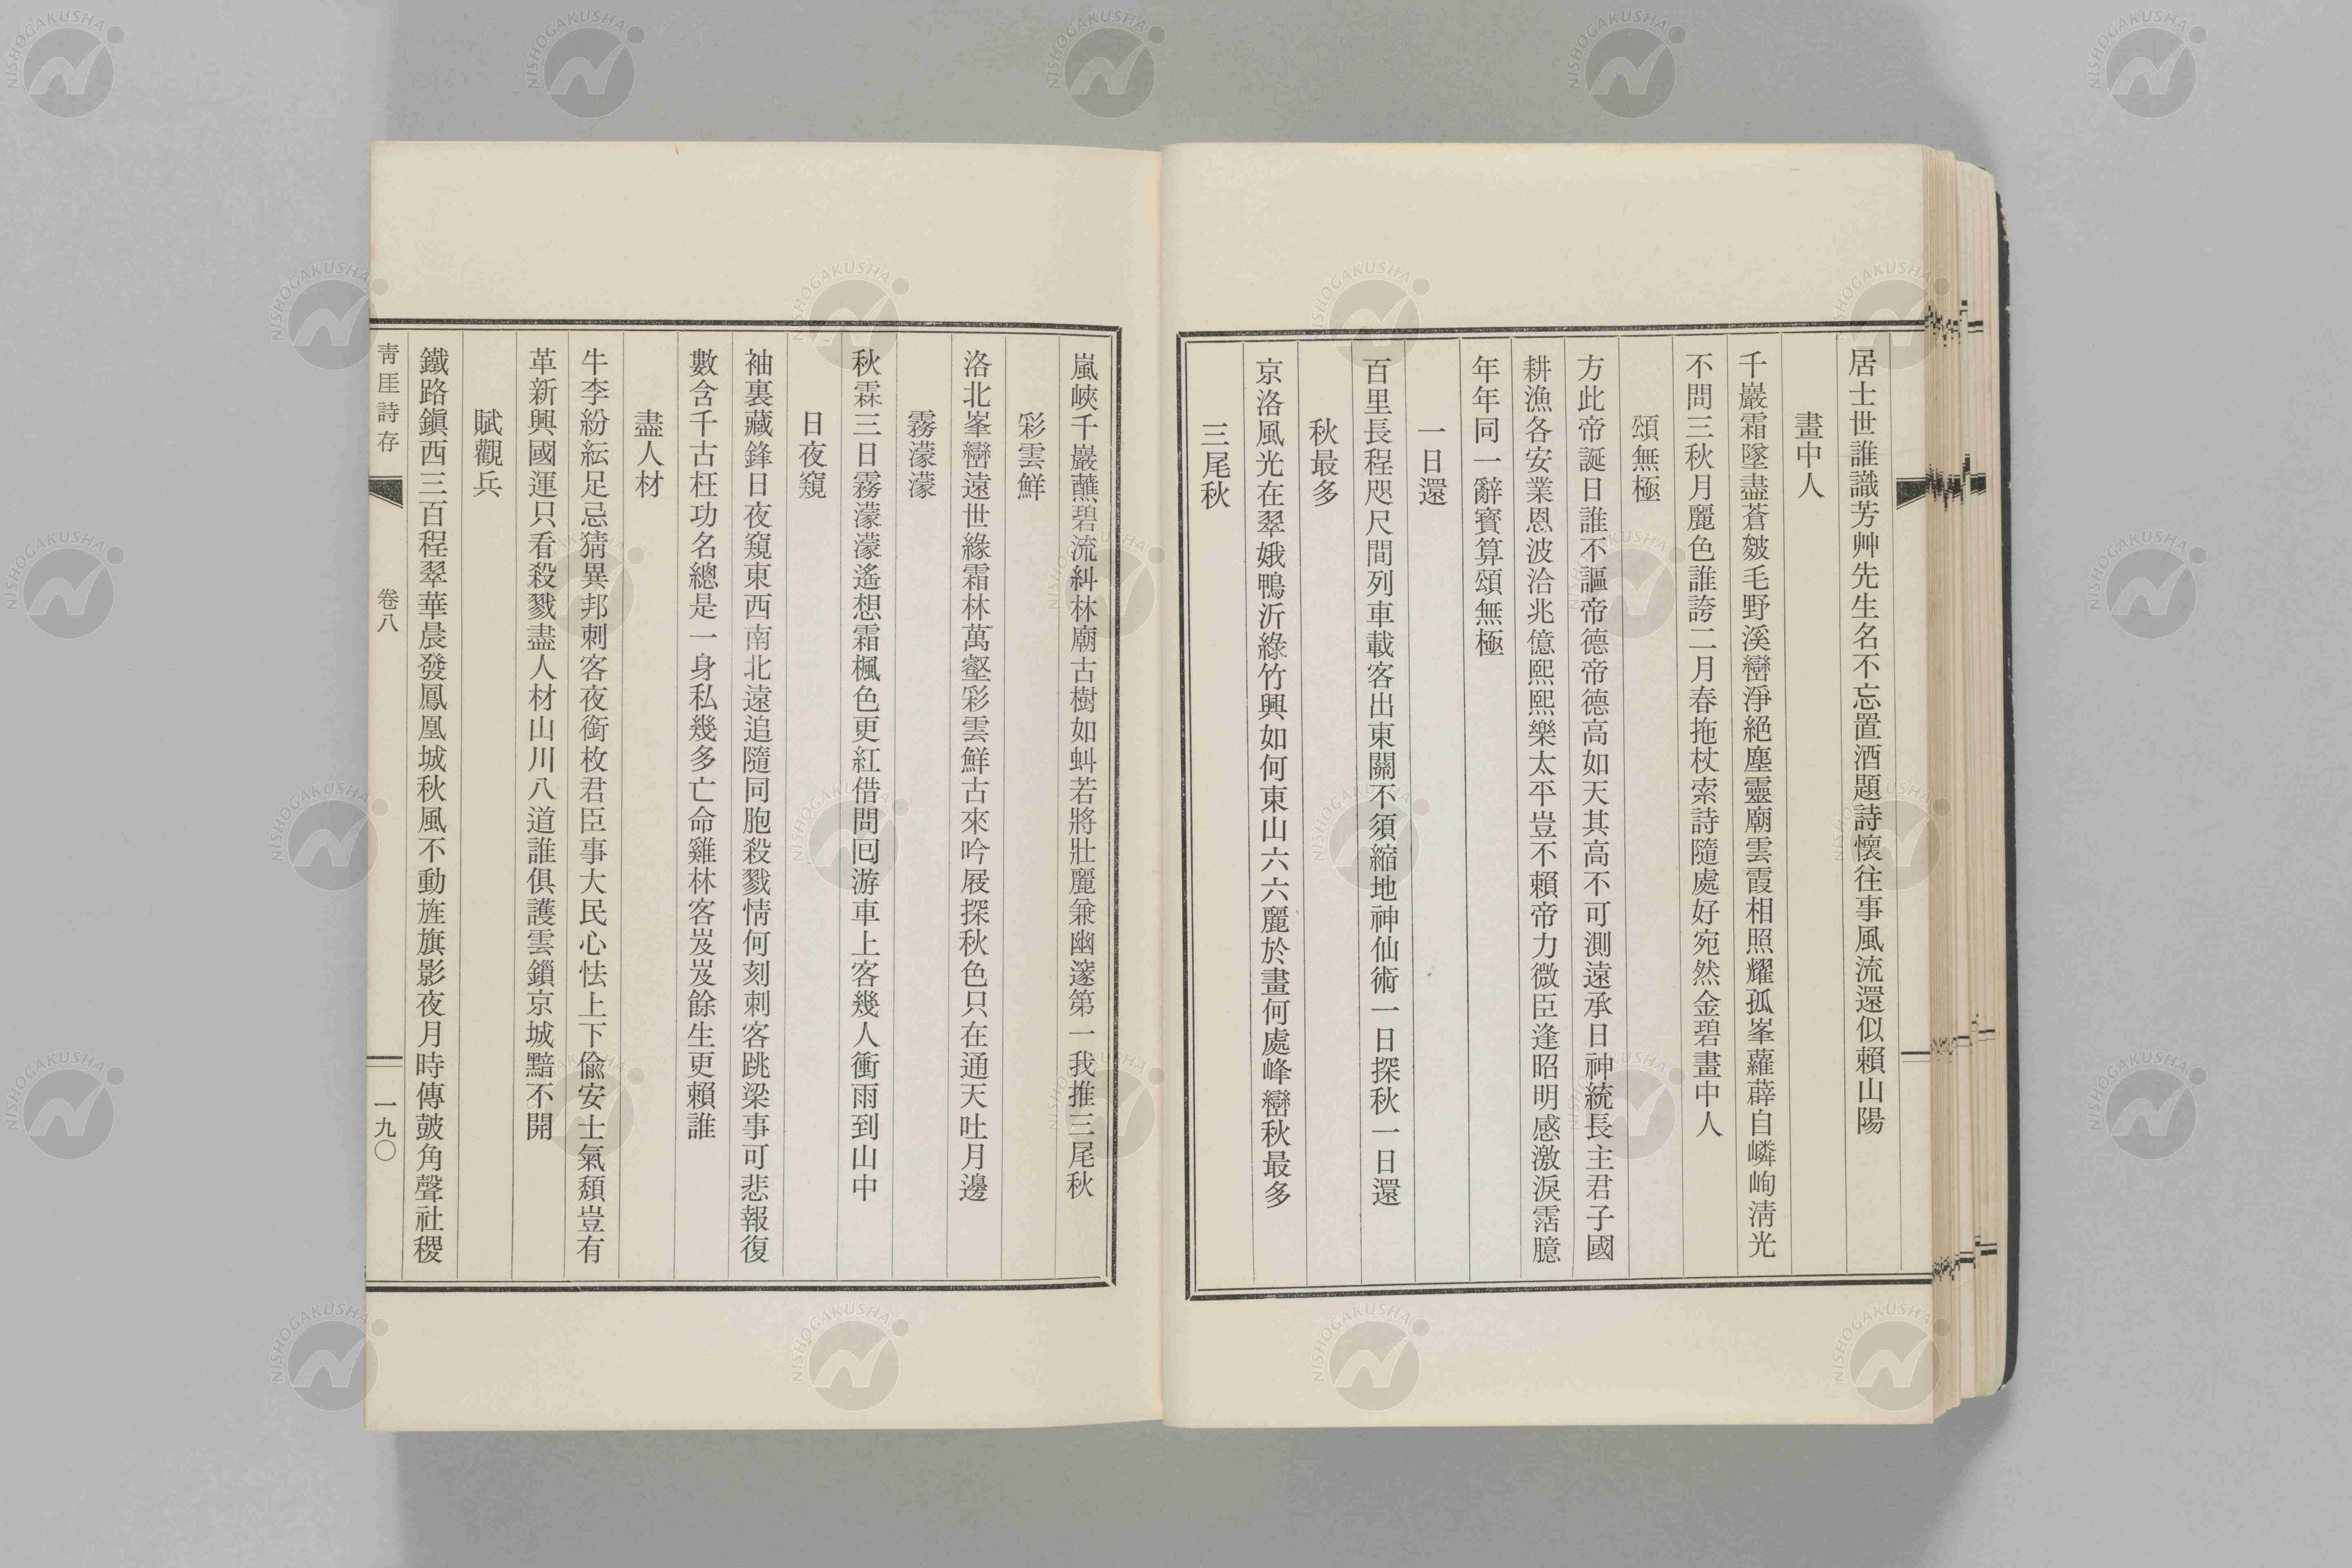 居士世誰識芳艸先生名不忘置酒題詩懷往事風流還似賴山陽
畫中人
千巖霜墜盡蒼皴毛野溪巒淨絕塵靈廟雲霞相照耀孤峯蘿薜自嶙峋淸光
不問三秋月麗色誰誇二月春拖杖索詩隨處好宛然金碧畫中人
頌無極
方此帝誕日誰不謳帝德帝德高如天其高不可測遠承日神統長主君子國
耕漁各安業恩波洽兆億熙熙樂太平豈不賴帝力微臣逢昭明感激淚霑臆
年年同一辭寶算頌無極
一日還
百里長程咫尺間列車載客出東關不須縮地神仙術一日探秋一日還
秋最多
京洛風光在翠娥鴨沂綠竹興如何東山六六麗於畫何處峰巒秋最多
三尾秋
嵐峽千巖蘸碧流糾林廟古樹如虯若將壯麗兼幽邃第一我推三尾秋
彩雲鮮
洛北峯巒遠世緣霜林萬壑彩雲鮮古來吟屐探秋色只在通天吐月邊
霧濛濛
秋霖三日霧濛濛遙想霜楓色更紅借問囘游車上客幾人衝雨到山中
日夜窺
袖裏藏鋒日夜窺東西南北遠追隨同胞殺戮情何刻刺客跳梁事可悲報復
數含千古枉功名總是一身私幾多亡命雞林客岌岌餘生更賴誰
盡人材
牛李紛紜足忌猜異邦刺客夜銜枚君臣事大民心怯上下偸安士氣頹豈有
革新興國運只看殺戮盡人材山川八道誰俱護雲鎖京城黯不開
賦觀兵
鐵路鎭西三百程翠華晨發鳳凰城秋風不動旌旗影夜月時傳鼓角聲社稷
靑厓詩存
卷八
一九〇
NISHOGAKUSHA